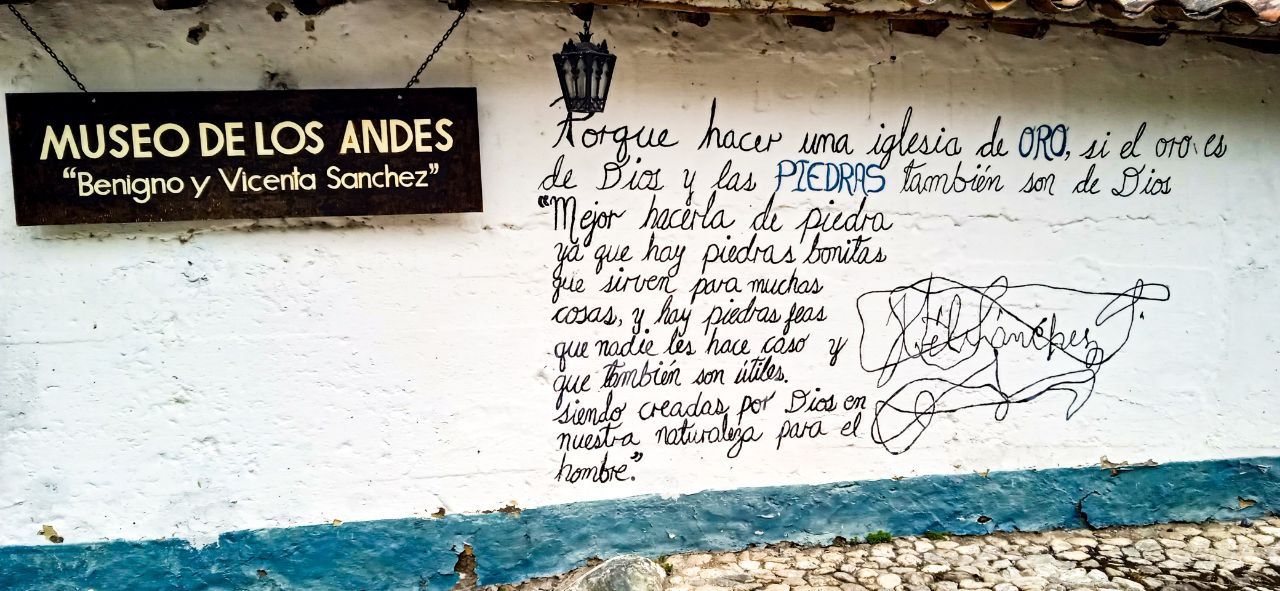 MUSEO DE LOS ANDES
"Benigno y Vicenta Sanchez"
Porque hacer una iglesia de ORO, si el oro es
de Dios y las PIEDRAS también son de Dios
"Mejor hacerla de piedra
ya que hay piedras bonitas
que sirven para muchas
cosas, y hay piedras feas
que nadie les hace caso y
que también son útiles.
siendo creadas por Dios en
nuestra naturaleza para el
hombre"